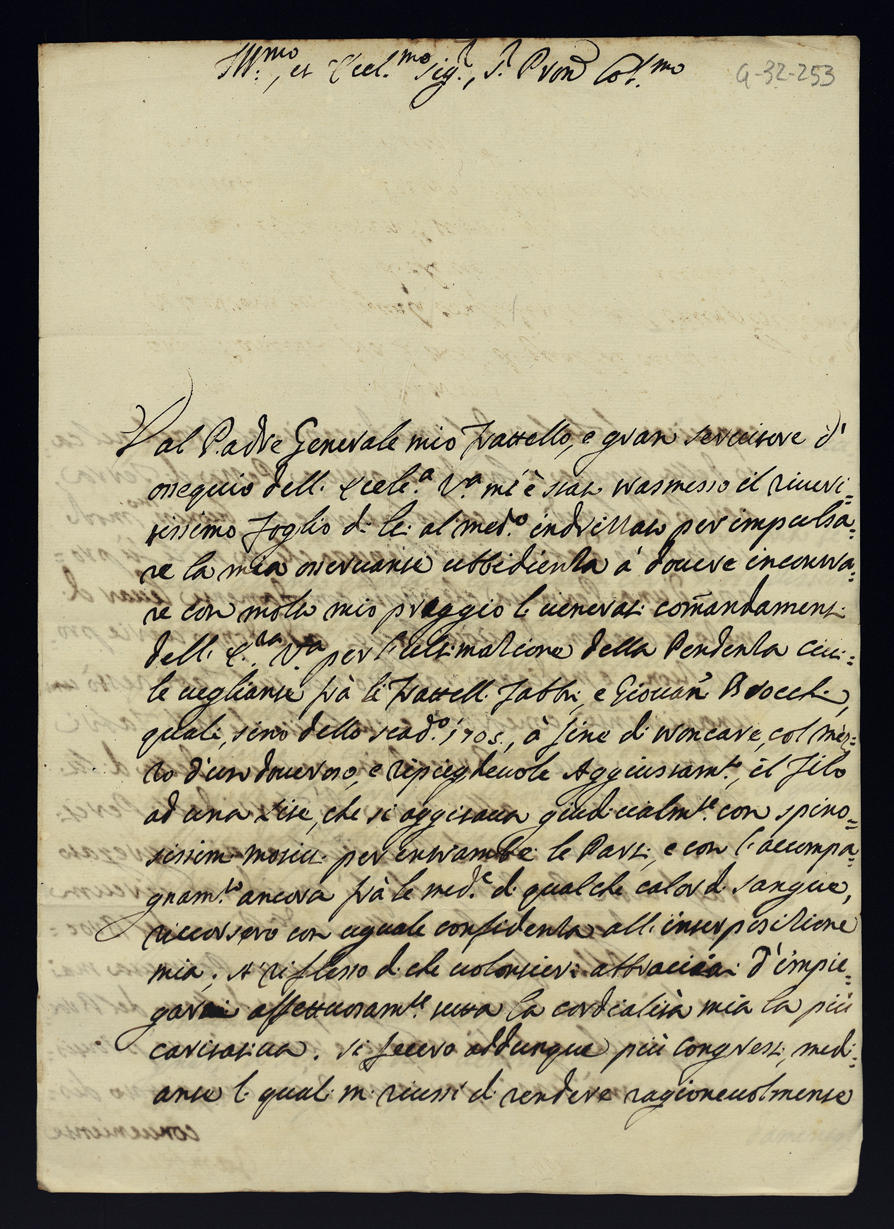 Ill.mo, et Eccl.mo Sig.r, S.r Pron Col.mo
G-32-253
Dal Padre Generale mio Fratello, e gran servitore d'
ossequio dell' Eccle.a V.a mi è stato trasmesso il riveri=
tissimo Foglio di lei al med.o indrittato per impulsa=
re la mia osservante ubbidienza à dovere incontra=
re con molto mio preggio li venerati comandamenti
dell' E.za V.a per l'ultimazione della Pendenza civi=
le vegliante frà li Fratelli Fabbri, e Giovan̄ Brocchi,
quali, sino dello scad.o 1705., à fine di troncare, col mez=
zo d'un doveroso, e ripieghevole Aggiustam.to, il Filo
ad una Lite, che si aggitava giudicialm.te con spino=
sissimi motivi per entrambe le Parti, e con l'accompa=
gnam.to ancora frà le med.e di qualche calor di sangue,
riccorsero con uguale confidenza all' interpositione
mia; A' riflesso di che volontieri abbracciai d'impie=
garvi affettuosam.te tutta la cordialità mia la più
caritativa. Si fecero addunque più Congressi, medi=
ante li quali mi riussi di rendere ragionevolmente